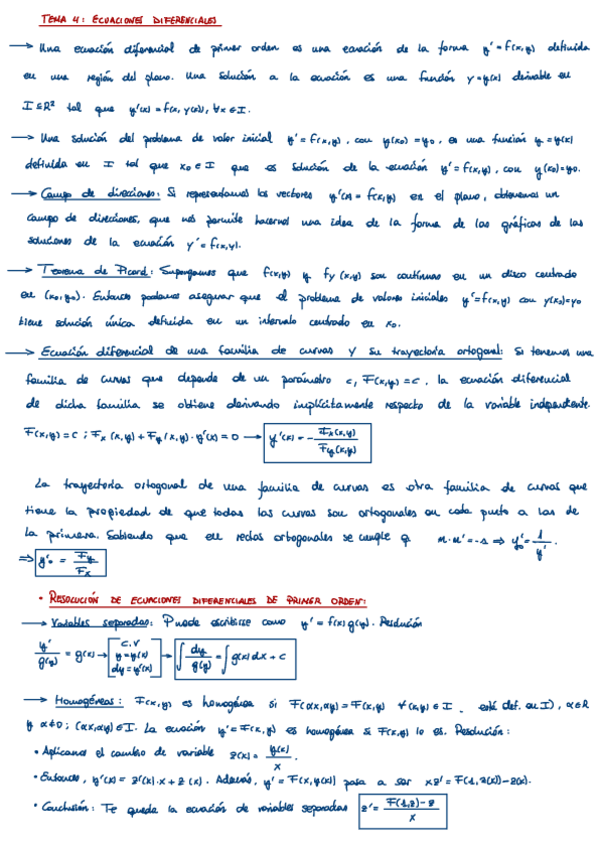 TEMA 4: ECUACIONES DIFERENCIALES
→ Una ecuación diferencial de primer orden es una ecuación de la forma y' = f(x,y) definida
en una región del plano. Una solución a la ecuación es una función y=y(x) derivable en
I⊆R² tal que y'(x) = f(x, y(x)), ∀x ∈ I.
→ Una solución del problema de valor inicial y' = f(x,y), con y(x₀) = y₀, es una función y = y(x)
definida en I tal que x₀ ∈ I que es solución de la ecuación y' = f(x,y), con y(x₀)=y₀.
→ Campo de direcciones: Si representamos los vectores y'(x) = f(x,y) en el plano, obtenemos un
campo de direcciones, que nos permite hacernos una idea de la forma de las gráficas de las
soluciones de la ecuación y' = f(x,y).
→ Teorema de Picard: Supongamos que f(x,y) y fy (x,y) son continuas en un disco centrado
en (x₀,y₀). Entonces podemos asegurar que el problema de valores iniciales y'=f(x,y) con y(x₀)=y₀
tiene solución única definida en un intervalo centrado en x₀.
→ Ecuación diferencial de una familia de curvas y su trayectoria ortogonal: Si tenemos una
familia de curvas que depende de un parámetro c, F(x,y) = c, la ecuación diferencial
de dicha familia se obtiene derivando implícitamente respecto de la variable independiente.
F(x,y) = c ; Fx (x,y) + Fy (x,y) · y'(x) = 0 → y'(x) = - Fx(x,y) / Fy(x,y)
La trayectoria ortogonal de una familia de curvas es otra familia de curvas que
tiene la propiedad de que todas las curvas son ortogonales en cada punto a las de
la primera. Sabiendo que en rectas ortogonales se cumple q m·m' = -1 ⇒ y'₀ = 1 / y'.
⇒ y'₀ = Fy / Fx
• RESOLUCIÓN DE ECUACIONES DIFERENCIALES DE PRIMER ORDEN:
→ Variables separadas: Puede escribirse como y' = f(x) g(y). Resolución
y' / g(y) = g(x) → [c.v y = y(x) dy = y'(x)] → ∫ dy / g(y) = ∫ g(x) dx + c
→ Homogéneas: F(x,y) es homogénea si F(αx,αy) = F(x,y) ∀(x,y) ∈ I, está def. en I), α∈R
y α≠0; (αx,αy) ∈ I. La ecuación y' = F(x,y) es homogénea si F(x,y) lo es. Resolución:
• Aplicamos el cambio de variable z(x) = y(x) / x.
• Entonces, y'(x) = z'(x)·x + z(x). Además, y' = F(x,y(x)) pasa a ser xz' = F(1,z(x)) - z(x).
• Conclusión: Te queda la ecuación de variables separadas z' = F(1,z) - z / x